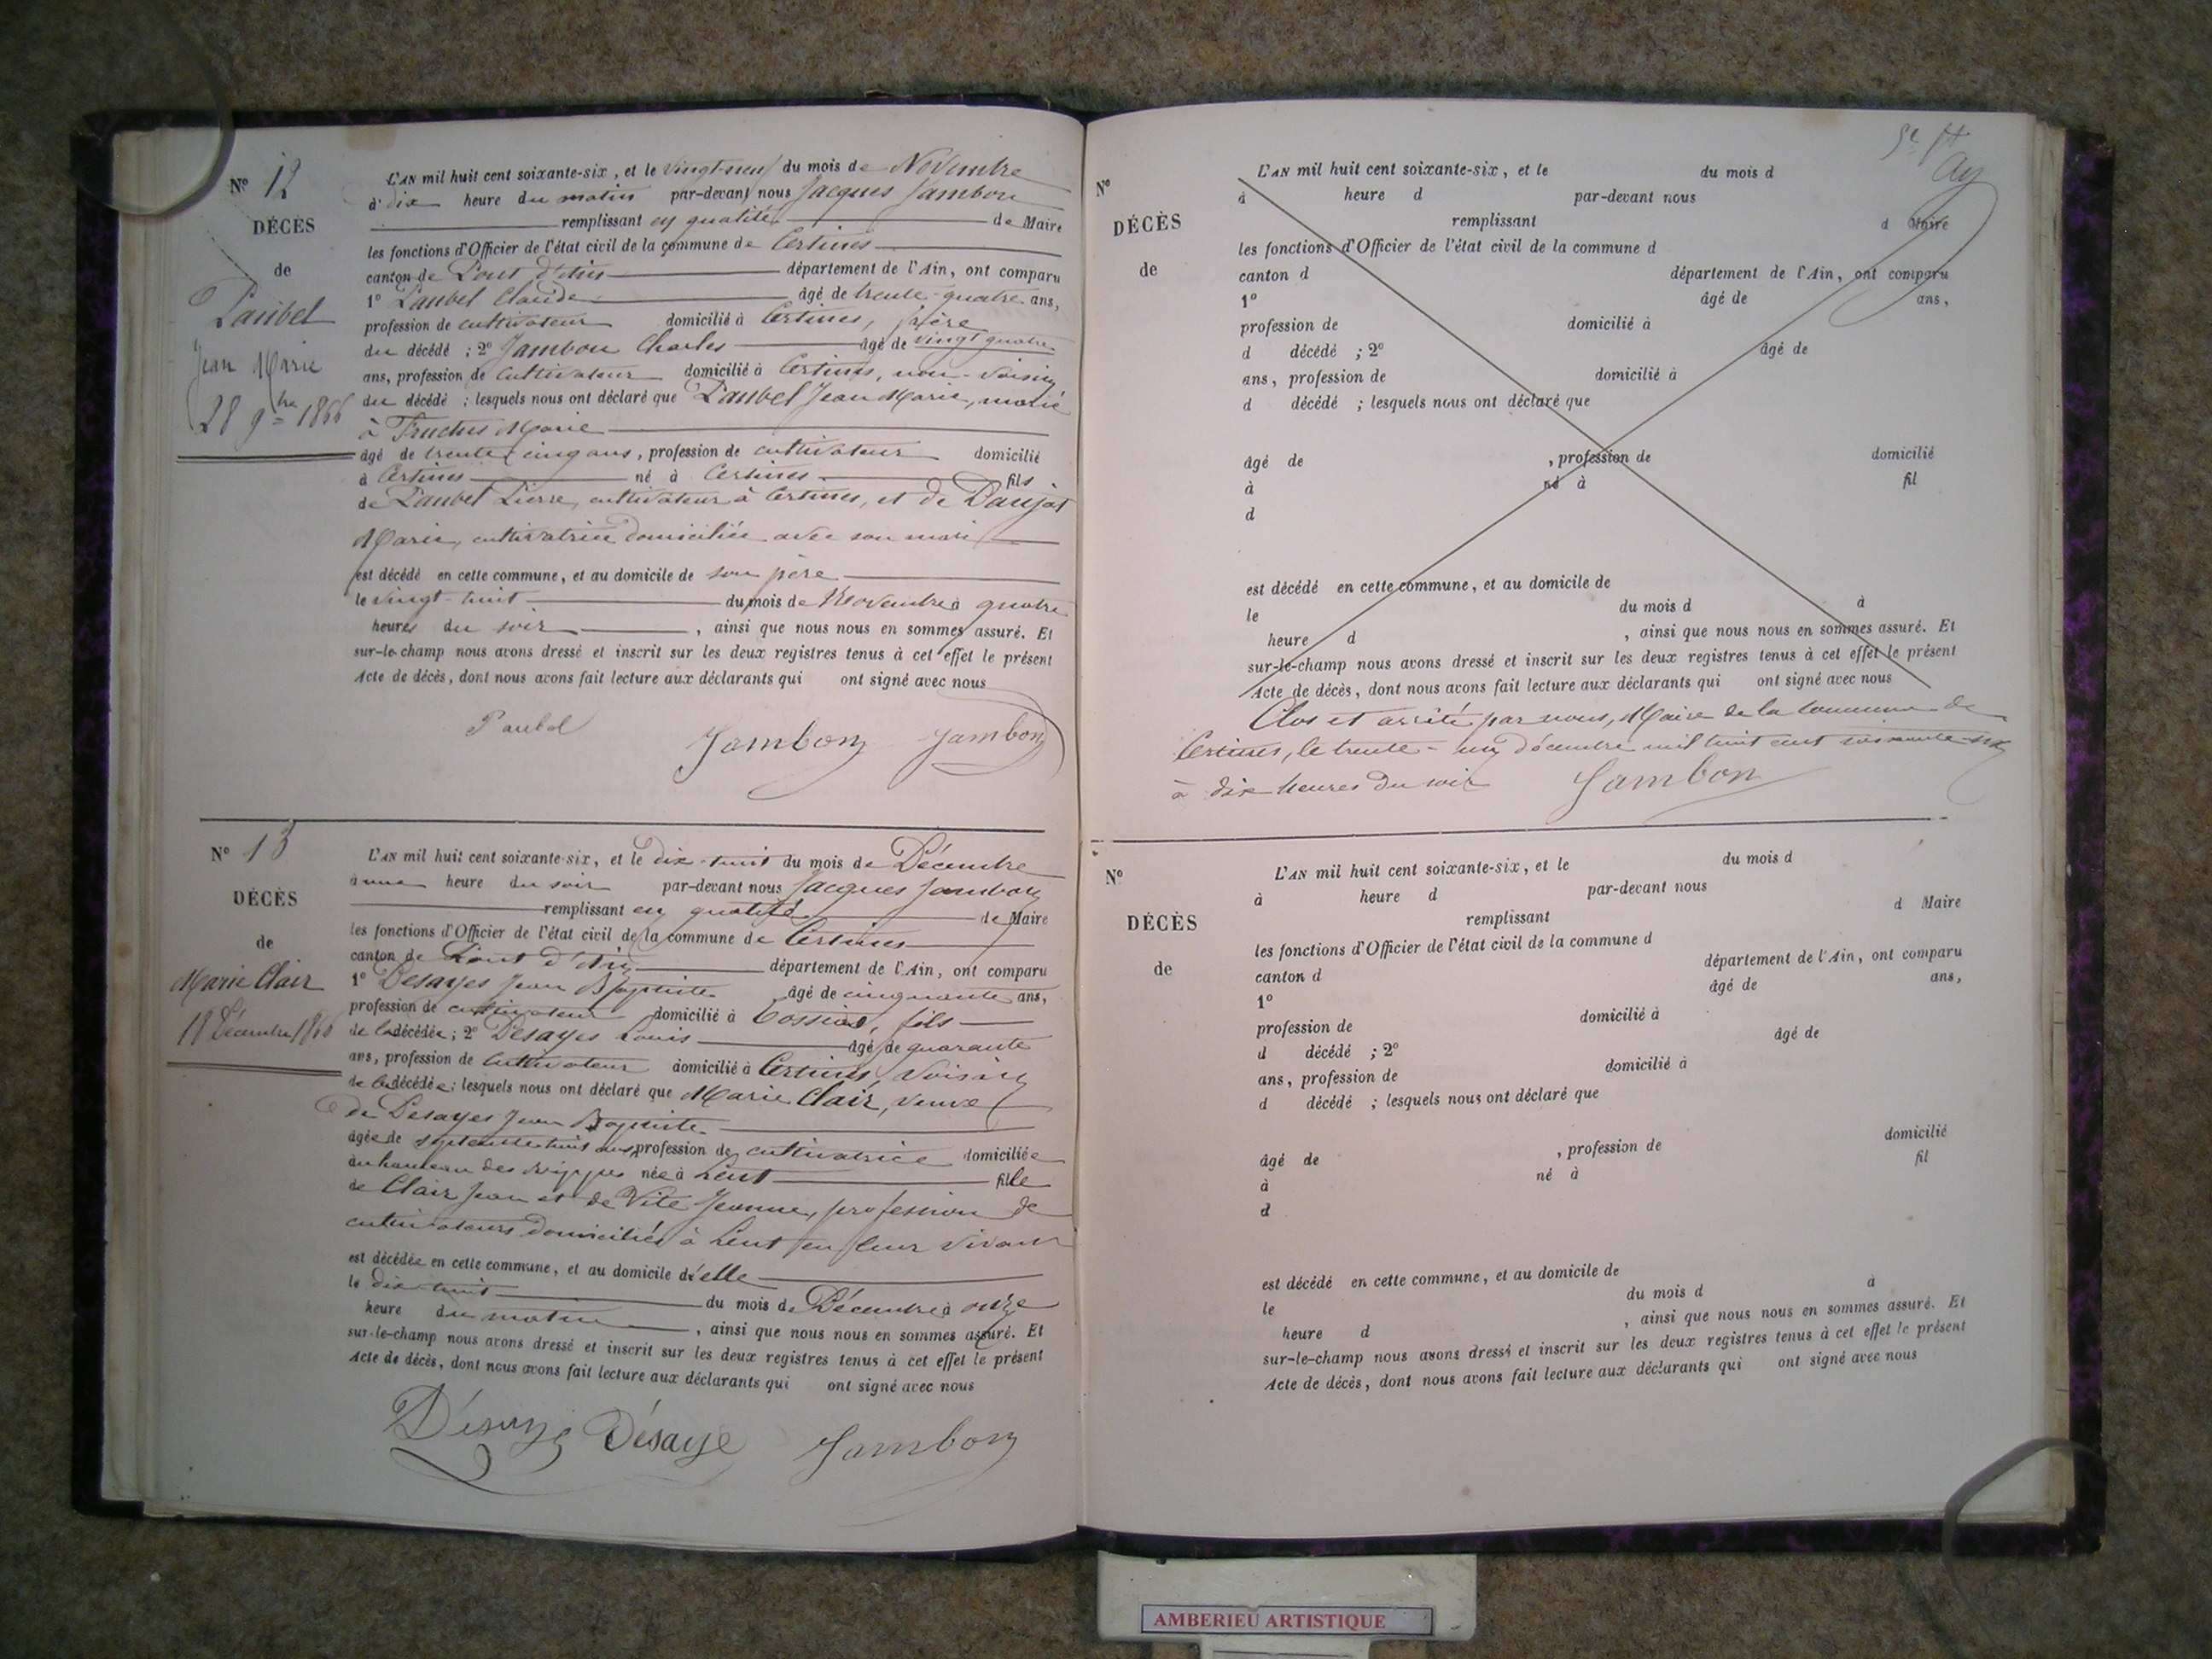 Nº 12
DÉCÈS
de
Paubel
Jean Marie
28 9bre 1866
L'AN mil huit cent soixante-six, et le vingt-neuf du mois de Novembre
à dix heure du matin par-devant nous Jacques Jambon
remplissant en qualité de Maire
les fonctions d'Officier de l'état civil de la commune de Certines
canton de Pont d'Ain département de l'Ain, ont comparu
1º Paubel Claude âgé de trente-quatre ans,
profession de cultivateur domicilié à Certines, frère
du décédé ; 2º Jambon Charles âgé de vingt quatre
ans, profession de cultivateur domicilié à Certines, non-voisin
du décédé ; lesquels nous ont déclaré que Paubel Jean Marie, marié
à Fructus Marie
âgé de trente cinq ans, profession de cultivateur domicilié
à Certines né à Certines fils
de Paubel Pierre, cultivateur à Certines, et de Daujat
Marie, cultivatrice domiciliée avec son mari
est décédé en cette commune, et au domicile de son père
le vingt-huit du mois de Novembre à quatre
heures du soir, ainsi que nous nous en sommes assuré. Et
sur-le-champ nous avons dressé et inscrit sur les deux registres tenus à cet effet le présent
Acte de décès, dont nous avons fait lecture aux déclarants qui ont signé avec nous
Paubel Jambon Jambon
Nº 13
DÉCÈS
de
Marie Clair
18 Décembre 1866
L'AN mil huit cent soixante-six, et le dix-huit du mois de Décembre
à une heure du soir par-devant nous Jacques Jambon
remplissant en qualité de Maire
les fonctions d'Officier de l'état civil de la commune de Certines
canton de Pont d'Ain département de l'Ain, ont comparu
1º Desayes Jean Baptiste âgé de cinquante ans,
profession de cultivateur domicilié à fils
de la décédée ; 2º Desayes Louis âgé de quarante
ans, profession de cultivateur domicilié à Certines, voisin
de la décédée ; lesquels nous ont déclaré que Marie Clair, veuve
de Desayes Jean Baptiste
âgée de septante-huit ans, profession de cultivatrice domiciliée
au hameau des née à Lent fille
de Clair Jean et de Vite Jeanne, profession de
cultivateurs domiciliés à Lent en leur vivant
est décédée en cette commune, et au domicile d'elle
le dix-huit du mois de Décembre à onze
heure du matin, ainsi que nous nous en sommes assuré. Et
sur-le-champ nous avons dressé et inscrit sur les deux registres tenus à cet effet le présent
Acte de décès, dont nous avons fait lecture aux déclarants qui ont signé avec nous
Désaye Jambon
Nº
DÉCÈS
de
L'AN mil huit cent soixante-six, et le du mois d
à heure d par-devant nous
remplissant d Maire
les fonctions d'Officier de l'état civil de la commune d
canton d département de l'Ain, ont comparu
1º âgé de ans,
profession de domicilié à
d décédé ; 2º âgé de
ans, profession de domicilié à
d décédé ; lesquels nous ont déclaré que
âgé de , profession de domicilié
à né à fil
d
est décédé en cette commune, et au domicile de
le du mois d à
heure d , ainsi que nous nous en sommes assuré. Et
sur-le-champ nous avons dressé et inscrit sur les deux registres tenus à cet effet le présent
Acte de décès, dont nous avons fait lecture aux déclarants qui ont signé avec nous
Clos et arrêté par nous, Maire de la Commune de
Certines, le trente-un décembre mil huit cent soixante-six
à dix heures du soir Jambon
Nº
DÉCÈS
de
L'AN mil huit cent soixante-six, et le du mois d
à heure d par-devant nous
remplissant d Maire
les fonctions d'Officier de l'état civil de la commune d
canton d département de l'Ain, ont comparu
1º âgé de ans,
profession de domicilié à
d décédé ; 2º âgé de
ans, profession de domicilié à
d décédé ; lesquels nous ont déclaré que
âgé de , profession de domicilié
à né à fil
d
est décédé en cette commune, et au domicile de
le du mois d à
heure d , ainsi que nous nous en sommes assuré. Et
sur-le-champ nous avons dressé et inscrit sur les deux registres tenus à cet effet le présent
Acte de décès, dont nous avons fait lecture aux déclarants qui ont signé avec nous
AMBERIEU ARTISTIQUE